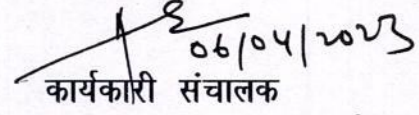 06/04/2023
कार्यकारी संचालक